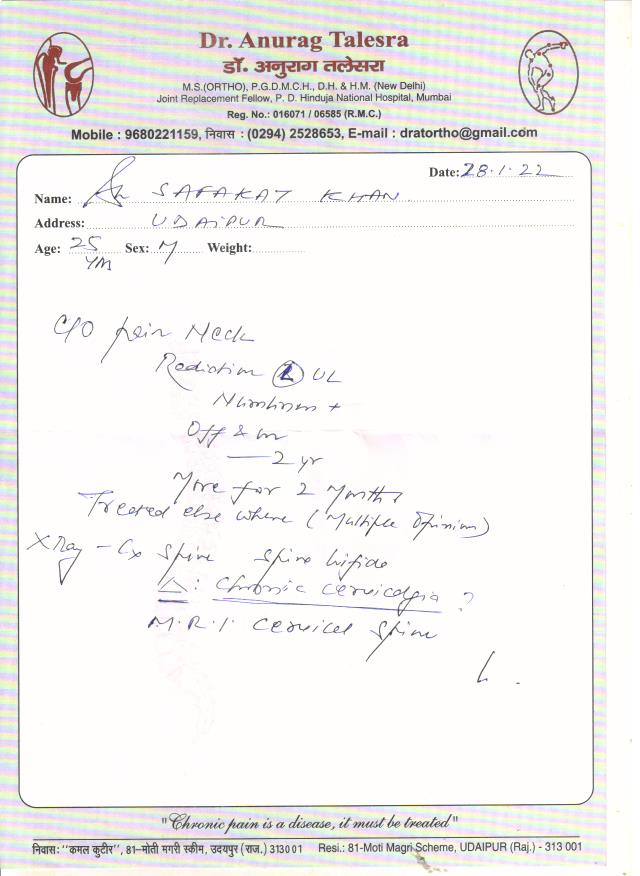 Dr. Anurag Talesra
डॉ. अनुराग तलेसरा
M.S.(ORTHO), P.G.D.M.C.H., D.H. & H.M. (New Delhi)
Joint Replacement Fellow, P. D. Hinduja National Hospital, Mumbai
Reg. No.: 016071 / 06585 (R.M.C.)
Mobile : 9680221159, निवास : (0294) 2528653, E-mail : dratortho@gmail.com
Date: 28.1.22
Name: SAFAKAT KHAN
Address: UDAIPUR
Age: 25 Sex: M Weight:
YM
C/O pain Neck
Radiation L UL
Numbness +
Off & on
— 2 yr
More for 2 Months
Treated else where (Multiple Opinions)
X Ray - Cx Spine Spina bifida
Δ: Chronic cervicalgia ?
M.R.I. Cervical Spine
"Chronic pain is a disease, it must be treated"
निवास: "कमल कुटीर", 81-मोती मगरी स्कीम, उदयपुर (राज.) 313001 Resi.: 81-Moti Magri Scheme, UDAIPUR (Raj.) - 313 001